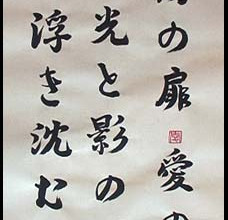 の扉 愛の
光と影の
浮き沈む